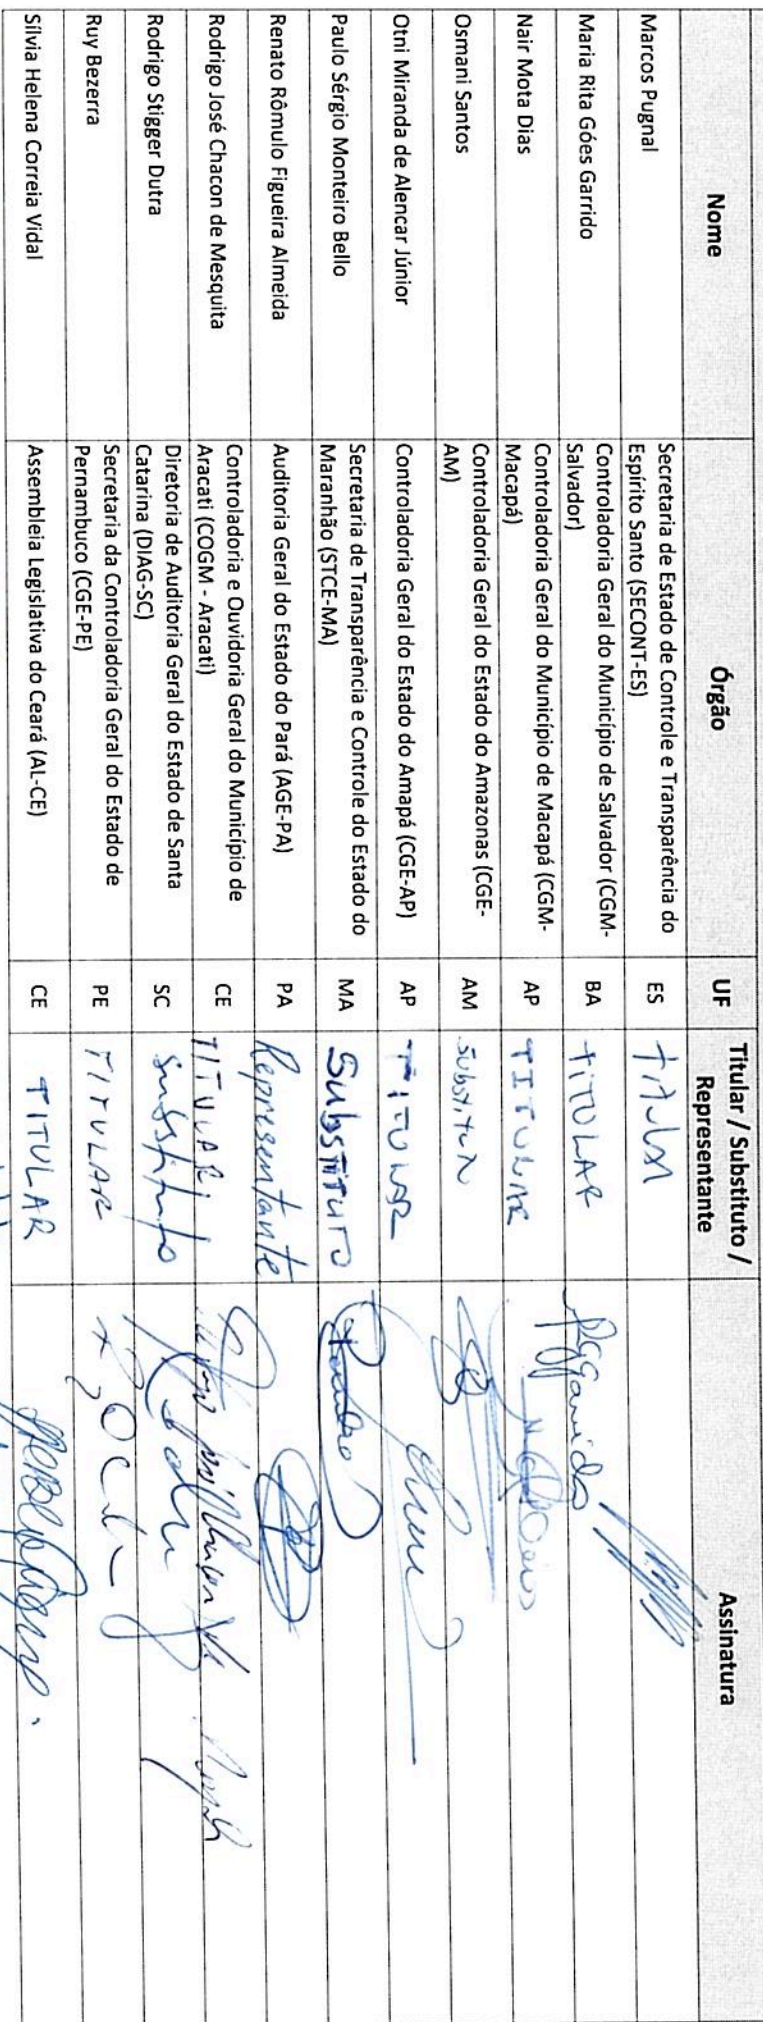 Nome Órgão UF Titular / Substituto /
Representante Assinatura
Marcos Pugnal Secretaria de Estado de Controle e Transparência do
Espírito Santo (SECONT-ES) ES Titular
Maria Rita Góes Garrido Controladoria Geral do Município de Salvador (CGM-
Salvador) BA TITULAR
Nair Mota Dias Controladoria Geral do Município de Macapá (CGM-
Macapá) AP TITULAR
Osmani Santos Controladoria Geral do Estado do Amazonas (CGE-
AM) AM
Otni Miranda de Alencar Júnior Controladoria Geral do Estado do Amapá (CGE-AP) AP TITULAR
Paulo Sérgio Monteiro Bello Secretaria de Transparência e Controle do Estado do
Maranhão (STCE-MA) MA SUBSTITUTO
Renato Rômulo Figueira Almeida Auditoria Geral do Estado do Pará (AGE-PA) PA Representante
Rodrigo José Chacon de Mesquita Controladoria e Ouvidoria Geral do Município de
Aracati (COGM - Aracati) CE TITULAR
Rodrigo Stigger Dutra Diretoria de Auditoria Geral do Estado de Santa
Catarina (DIAG-SC) SC Substituto
Ruy Bezerra Secretaria da Controladoria Geral do Estado de
Pernambuco (CGE-PE) PE TITULAR
Sílvia Helena Correia Vidal Assembleia Legislativa do Ceará (AL-CE) CE TITULAR